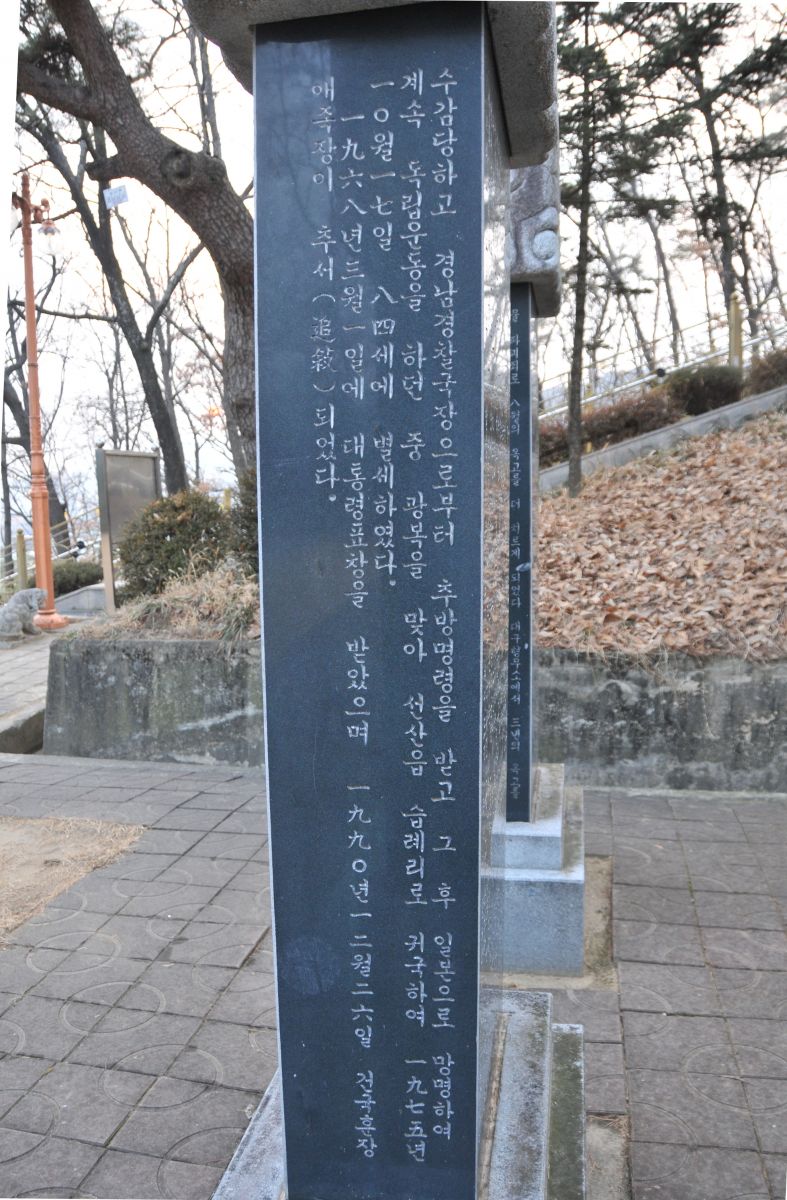 수감당하고 경남경찰국장으로부터 추방명령을 받고 그 후 일본으로 망명하여
계속 독립운동을 하던 중 광복을 맞아 선산읍 습례리로 귀국하여 一九七五년
一○월一七일 八四세에 별세하였다.
一九六八년三월一일에 대통령표창을 받았으며 一九九○년一二월二六일 건국훈장
애족장이 추서(追敍)되었다.
옥고를 더 치르게 되었다 대구형무소에서 三년의 옥고를